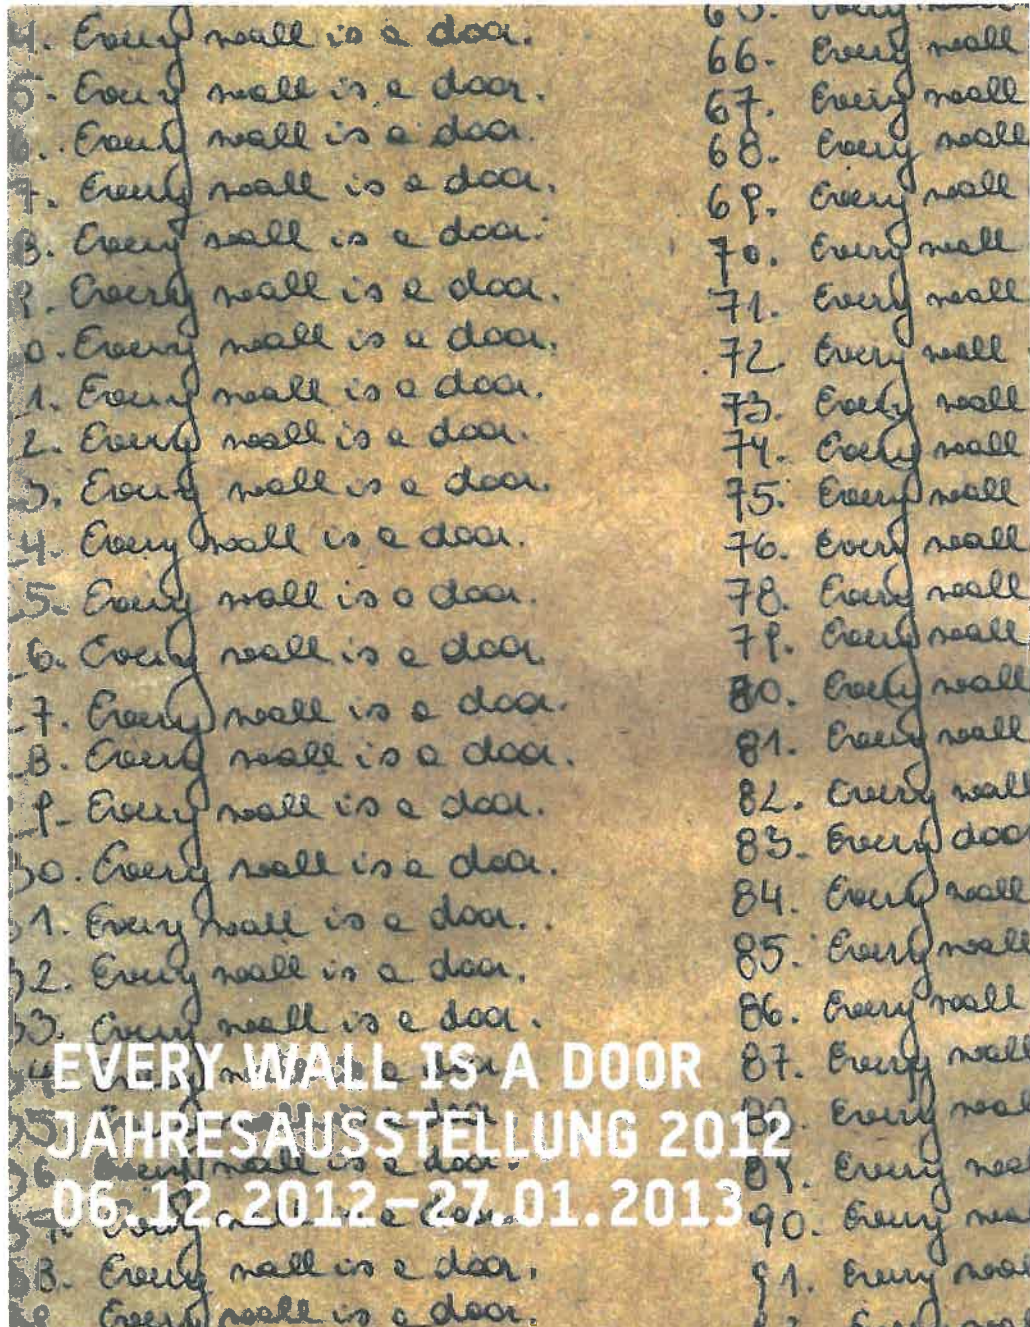 4. Every wall is a door.
5. Every wall is a door.
6. Every wall is a door.
7. Every wall is a door.
8. Every wall is a door.
9. Every wall is a door.
0. Every wall is a door.
1. Every wall is a door.
2. Every wall is a door.
3. Every wall is a door.
4. Every wall is a door.
5. Every wall is a door.
6. Every wall is a door.
7. Every wall is a door.
8. Every wall is a door.
9- Every wall is a door.
30. Every wall is a door.
31. Every wall is a door.
32. Every wall is a door.
33. Every wall is a door.
wall is a door
wall is a door
36. Every wall is a door.
37. Every wall is a door.
8. Every wall is a door.
Every wall is a door.
65. Every wall
66. Every wall
67. Every wall
68. Every wall
69. Every wall
70. Every wall
71. Every wall
72. Every wall
73. Every wall
74. Every wall
75. Every wall
76. Every wall
78. Every wall
79. Every wall
80. Every wall
81. Every wall
82. Every wall
83. Every doo
84. Every wall
85. Every wall
86. Every wall
87. Every wall
88. Every wal
89. Every wal
90. Every wa
91. Every wa
EVERY WALL IS A DOOR
JAHRESAUSSTELLUNG 2012
06.12.2012–27.01.2013